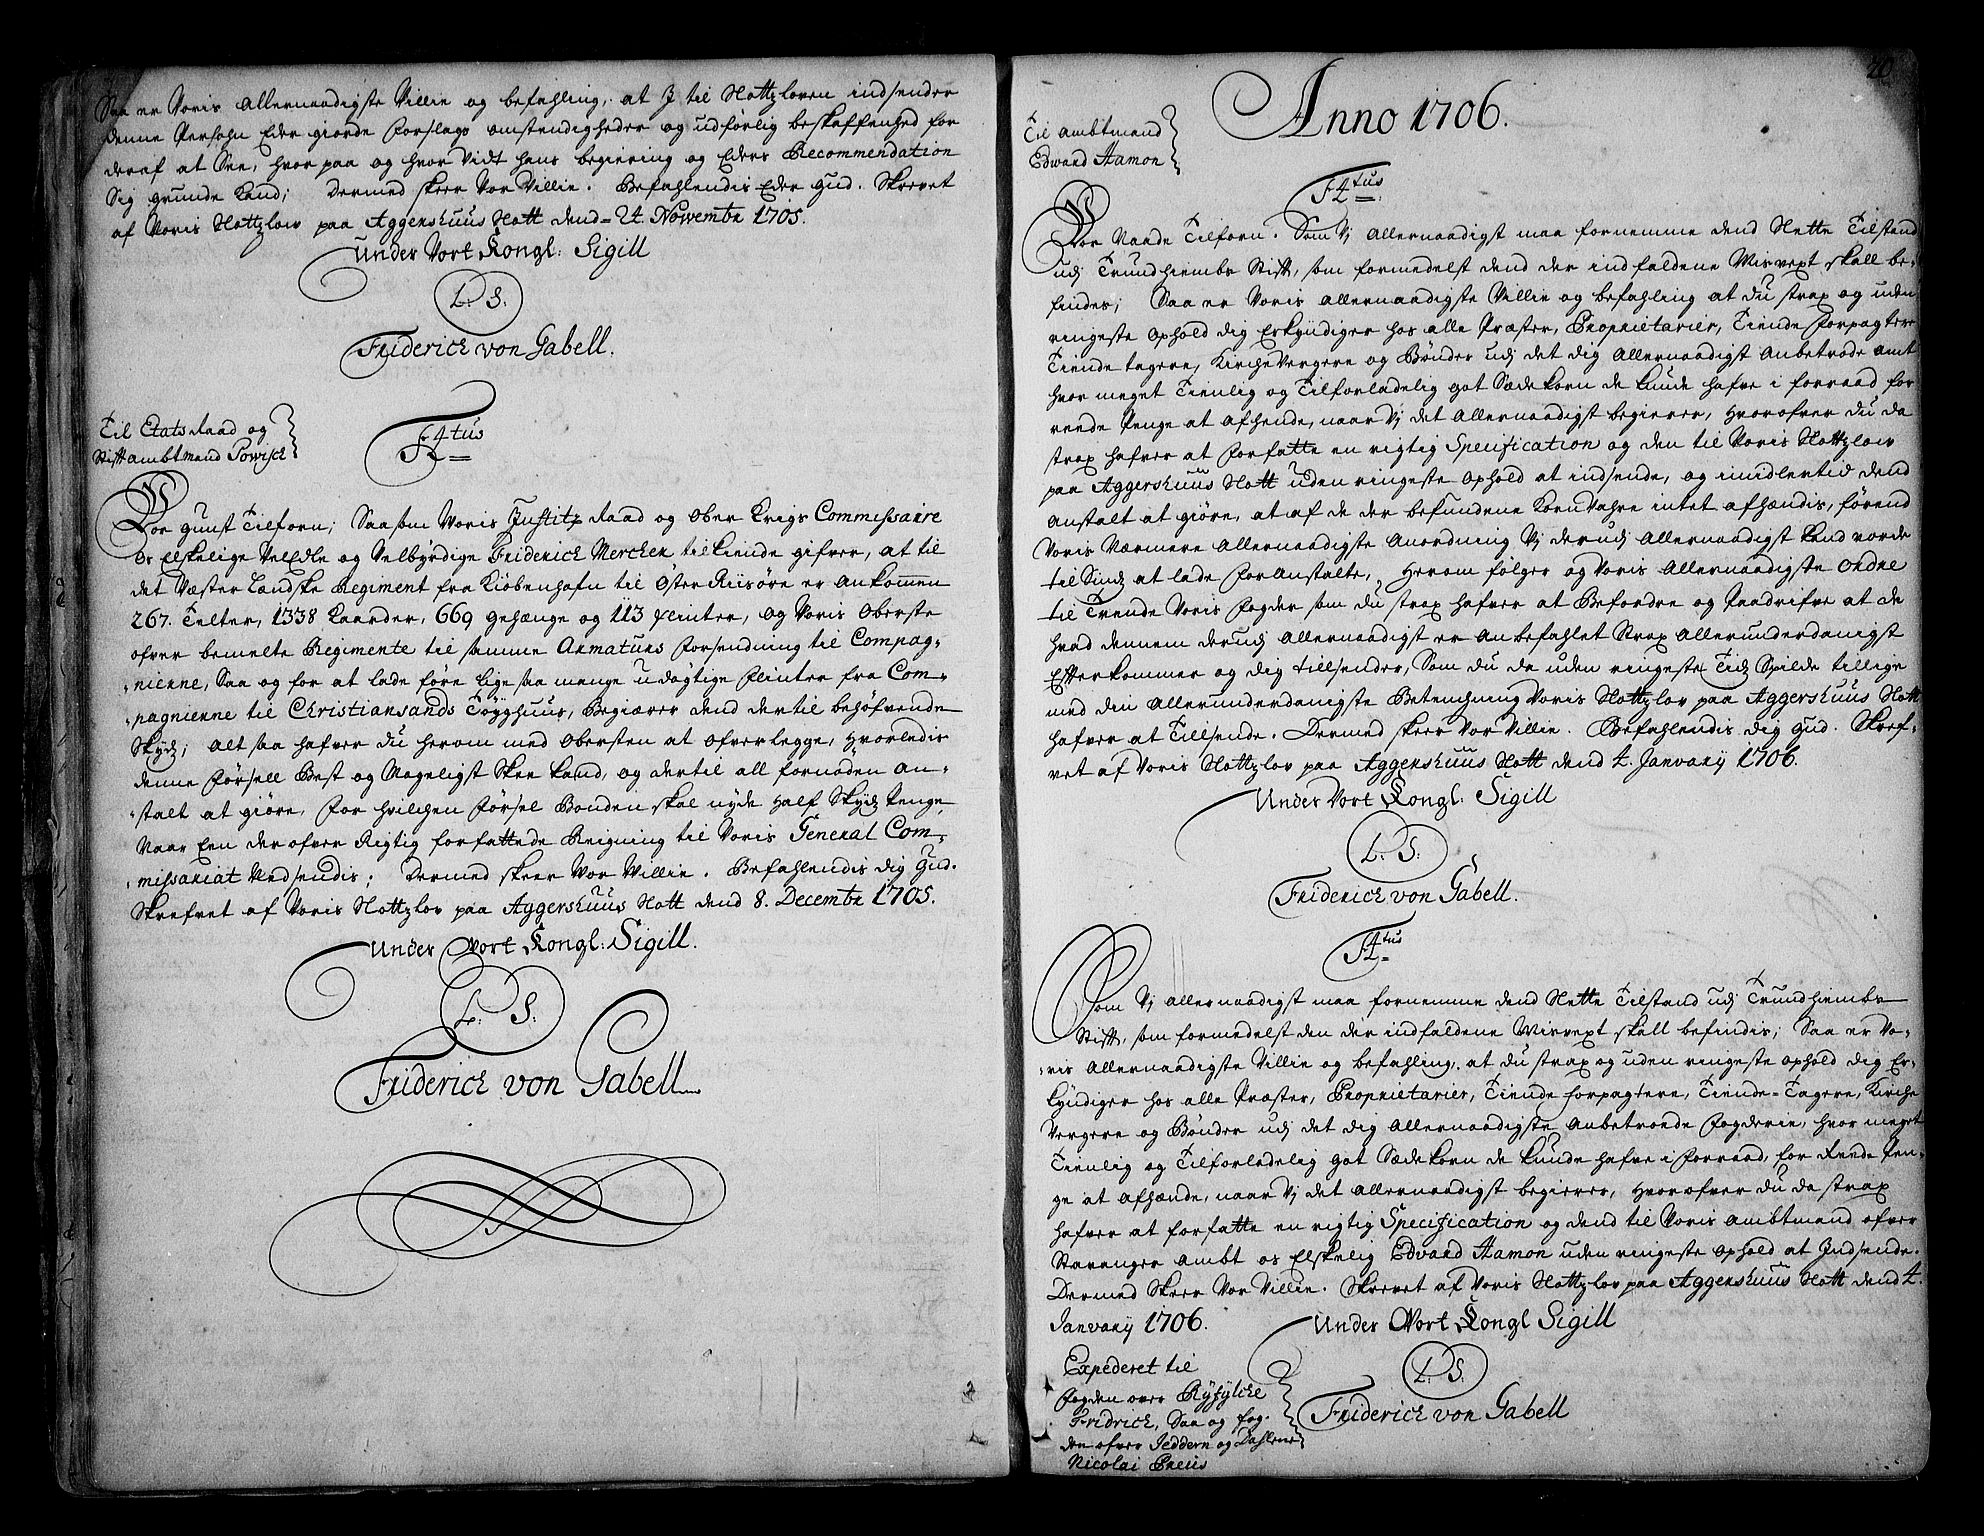 Saa er Voris allernaadigste Villie og befahling, at I til Slottzloven indsender
denne Persohn Eder giorde forslags omstendigheder og udførlig beskaffenhed for
deraf at See, hvor paa og hvor Vidt hans begiering og Eders Recommendation
Sig grunde kand; Dermed skeer Vor Villie. Befahlendis Eder Gud. Skrevet
af Voris Slottzlow paa Aggershuus Slott dend 24 Novembr 1705.
Under Vort Kongl: Sigill
L. S.
Friderich von Gabell.
Til Etats Raad og
Stiftambtmand Powisch
F4tus
Vor gunst Tilforn; Saasom Voris Justitz Raad og Ober Krigs Commissaire
Os Elskelige VelEdle og Velbyrdige Friderich Mercher tilkiende gifver, at til
det Væster Landske Regiment fra Kiøbenhafn til Øster Riisøre er ankommen
267. Telter, 1338 Kaarder, 669 gehænge og 113 flinter, og Voris Oberste
ofver bemelte Regimente til samme Armaturs forsendning til Compag-
nierne, Saa og for at lade føre lige saa mange udøgtige flinter fra Com-
pagnierne til Christiansands Tøyghuus, Begiærer dend dertil behøfvende
Skydz; alt saa hafver du herom med Obersten at ofverlegge, hvorledis
denne førsell Best og Mageligst Skee kand, og dertil all fornøden an-
stalt at giøre, for hvilchen førsel Bonden skal nyde half Skydz Penge
Naar Een der ofver Rigtig forfattede Reigning til Voris General Com-
missariat Nedsendis; Dermed skeer Vor Villie. Befahlendis dig Gud.
Skrefvet af Voris Slottzlov paa Aggershuus Slott dend 8. Decembr 1705.
Under Vort Kongl: Sigill.
L. S.
Friderich von Gabell
20
Anno 1706.
Til Ambtmand
Edward Hamon
F4tus
Vor Naade Tilforn. Som Vj allernaadigst maa fornemme dend Slette Tilstand
udj Trundhiembs Stift, som formedelst dend der indfaldene Misvext skall be-
findes; Saa er Voris allernaadigste Villie og befahling at du strax og uden
ringeste Ophold dig Erkyndiger hos alle Præster, Proprietarier, Tiende forpagtere
Tiende tagere, Kirche Vergere og Bønder udj det dig allernaadigst anbetroede amt
hvor meget Tienlig og Tilforladelig got Sæde Korn de kunde hafve i forraad for
reede Penge at afhende, naar Vj det allernaadigst begierer, hvorofver du da
strax hafver at forfatte en rigtig Specification og den til Voris Slottzlow
paa Aggershuus Slott uden ringeste Ophold at indsende, og imidlertid dend
Anstalt at giøre, at af de der befundene Korn Vahre intet afhændis, førend
Voris Nærmere allernaadigste Anordning Vj derudj allernaadigst kand vorde
til Sindz at lade foranstalte, Herom følger og Voris allernaadigste Ordre
til Trende Voris fogder som du strax hafver at Befordre og Paadrifve at de
hvad dennem derudj allernaadigst er anbefahlet Strax allerunderdanigst
Efterkommer og dig tillsender, Som du da uden ringeste Tidz Spilde tillige
med din allerunderdanigste Betenchning Voris Slottzlov paa Aggershuus Slott
hafver at Tillsende. Dermed skeer Vor Villie. Befahlendis dig Gud. Skref-
vet af Voris Slottzlov paa Aggershuus Slott dend 4. January 1706.
Under Vort Kongl: Sigill
L. S.
Friderich von Gabell.
F4tus
Som Vj allernaadigst maa fornemme dend Slette Tilstand udj Trundhiembs
Stift, som formedelst den der indfaldene Misvext skall befindis; Saa er Vo-
ris Allernaadigste Villie og befahling, at du strax og uden ringeste Ophold dig Er-
kyndiger hos alle Præster, Proprietarier, Tiende forpagtere, Tiende-Tagere, Kirche
Vergere og Bønder udj det dig allernaadigste anbetroede fogderie, hvor meget
Tienlig og Tilforladelig got Sæde Korn de kunde hafve i forraad, for Reede Pen-
ge at afhænde, naar Vj det allernaadigst begierer, hvorofver du da strax
hafver at forfatte en rigtig Specification og dend til Voris Ambtmand ofver
Stavanger Ambt os Elskelig Edvard Hamon uden ringeste Ophold at Indsende.
Dermed Skeer Vor Villie. Skrevet af Voris Slottzlov paa Aggershuus Slott dend 4.
January 1706.
Under Vort Kongl Sigill
L. S.
Friderich von Gabell
Expederet til
fogden over Ryfylche
Fridrich, Saa og fog-
den ofver Jeddern og Dahlene
Nicolai